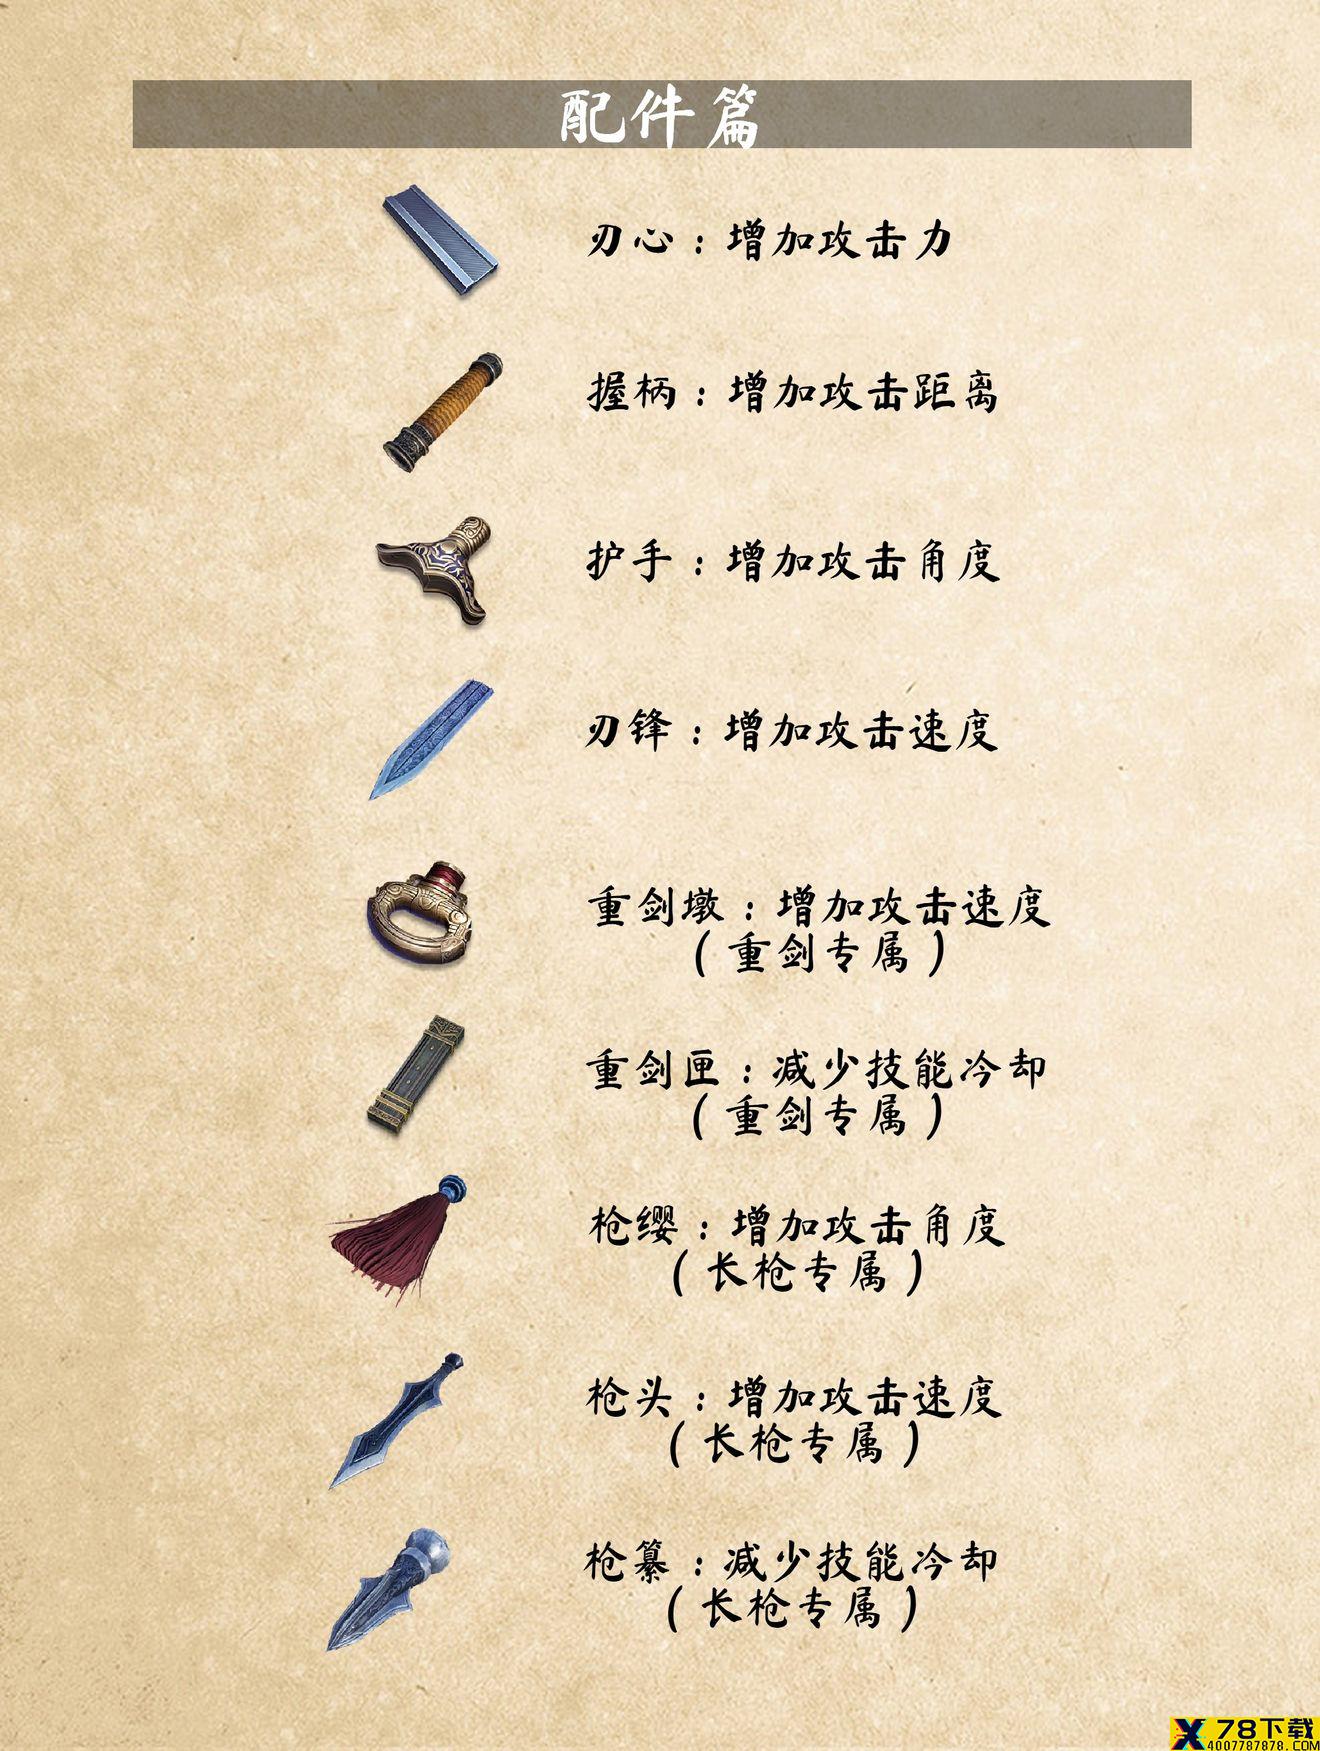 配件篇
刃心：增加攻击力
握柄：增加攻击距离
护手：增加攻击角度
刃锋：增加攻击速度
重剑墩：增加攻击速度
（重剑专属）
重剑匣：减少技能冷却
（重剑专属）
枪缨：增加攻击角度
（长枪专属）
枪头：增加攻击速度
（长枪专属）
枪纂：减少技能冷却
（长枪专属）
X 78下载
4007787878.COM